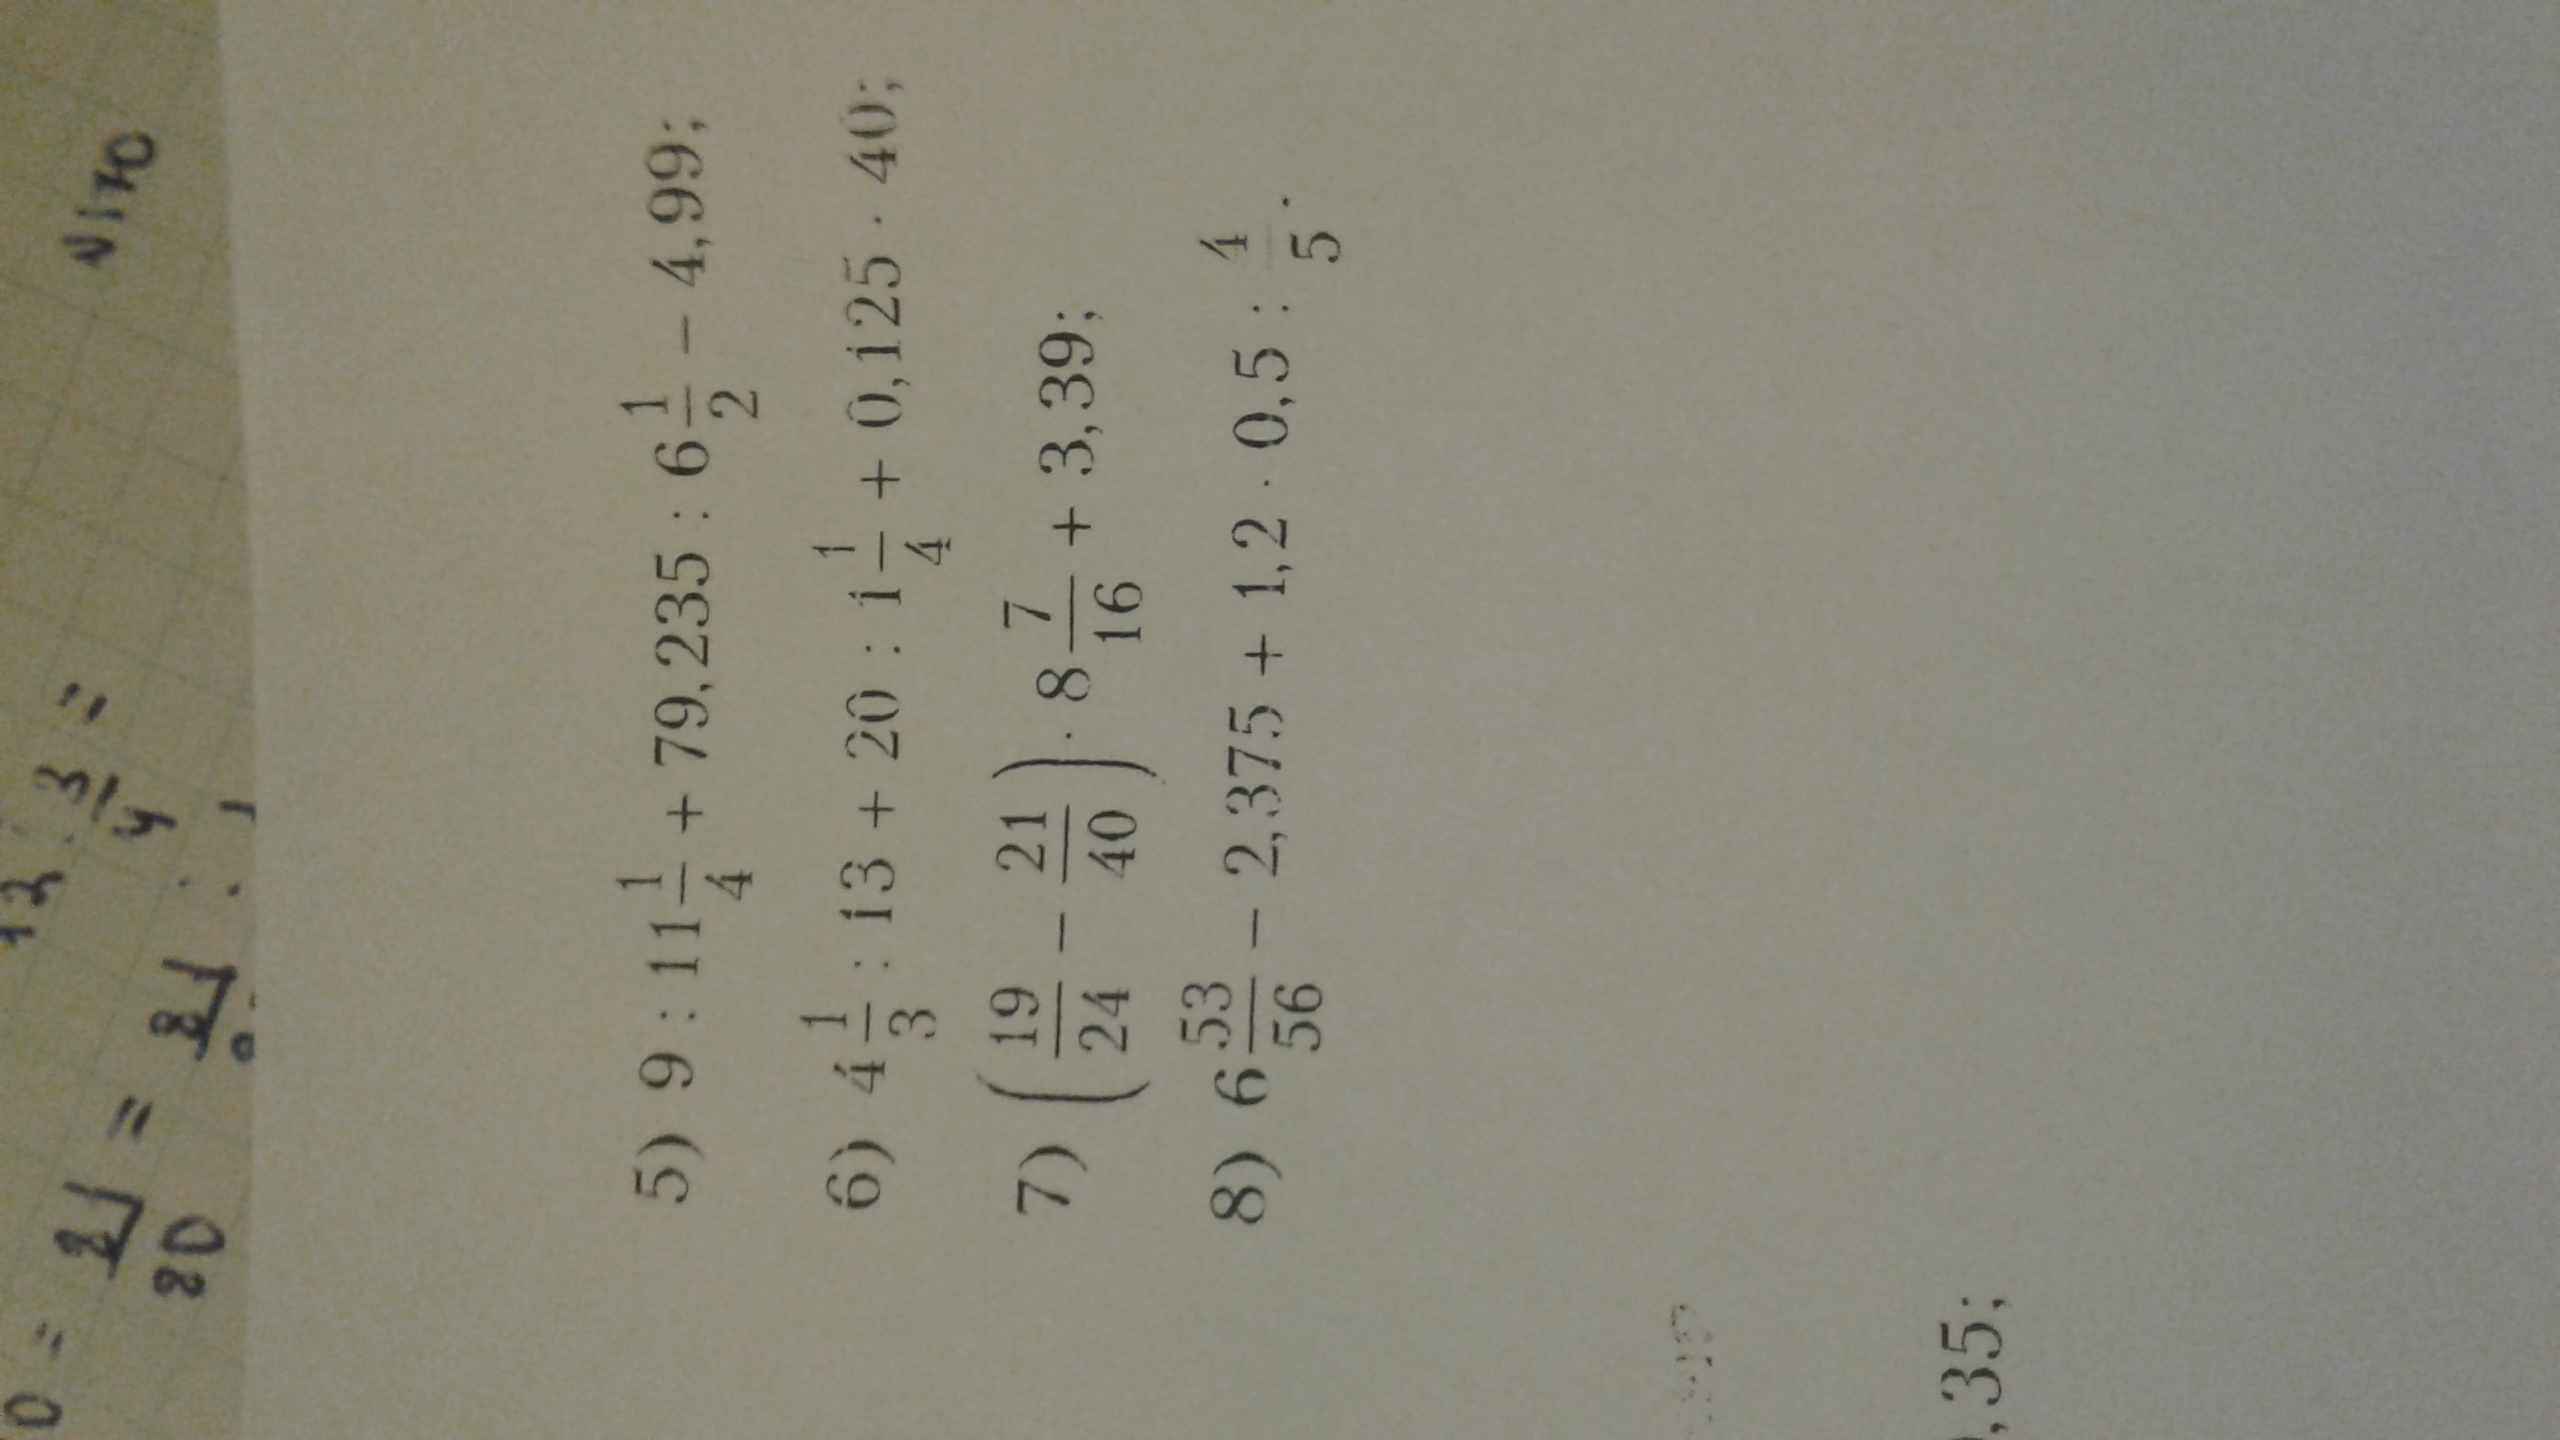 №170
= 2/20 =
3/4 =
5) 9 : 11 1/4 + 79,235 : 6 1/2 − 4,99;
6) 4 1/3 : 13 + 20 : 1 1/4 + 0,125 · 40;
7) (19/24 − 21/40) · 8 7/16 + 3,39;
8) 6 53/56 − 2,375 + 1,2 · 0,5 : 4/5.
,35;